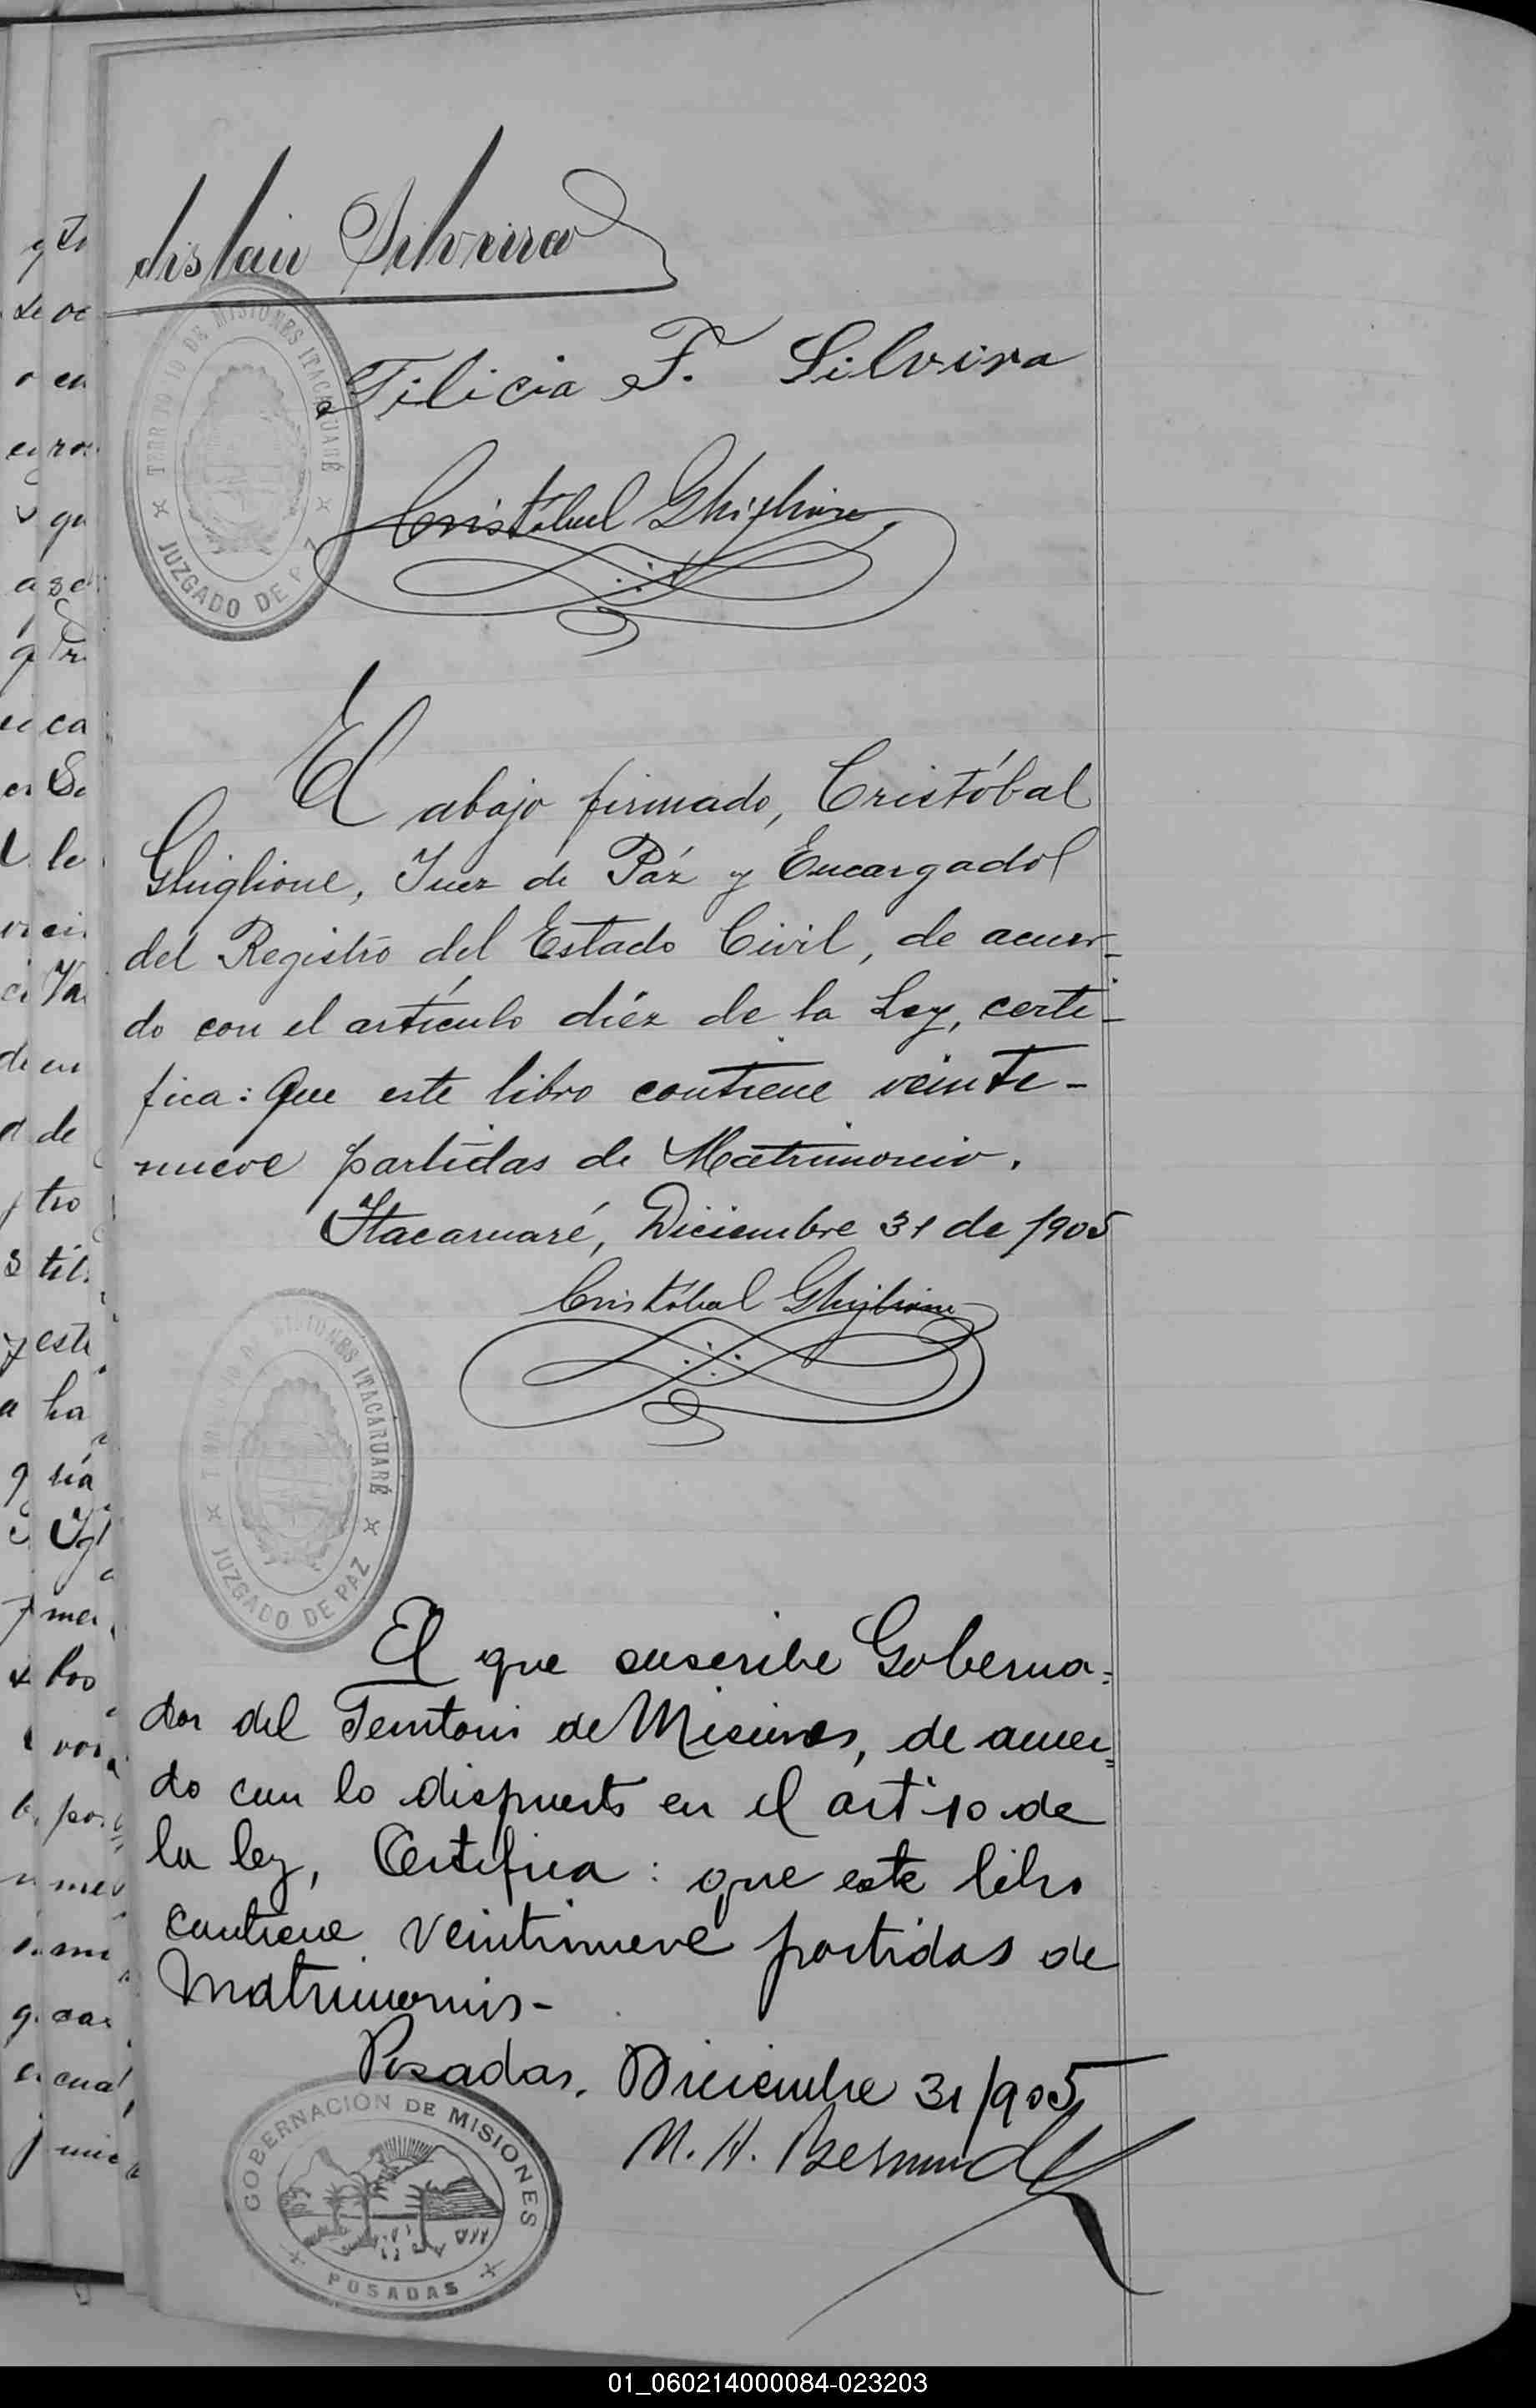 Silveira
TERRITORIO DE MISIONES ITACARUARÉ
JUZGADO DE PAZ
Filicia F. Silvira
Cristóbal Ghiglione
El abajo firmado, Cristóbal
Ghiglione, Juez de Páz y Encargado
del Registro del Estado Civil, de acuer-
do con el artículo diéz de la Ley, certi-
fica: Que este libro contiene veinte-
nueve partidas de Matrimonio.
Itacaruaré, Diciembre 31 de 1905
Cristóbal Ghiglione
TERRITORIO DE MISIONES ITACARUARÉ
JUZGADO DE PAZ
El que suscribe Goberna=
dor del Territorio de Misiones, de acuer=
do con lo dispuesto en el art 10 de
la ley, Certifica: que este libro
contiene veintinueve partidas de
Matrimonios-
Posadas, Diciembre 31/905
M. H. Bermudez
GOBERNACIÓN DE MISIONES
POSADAS
01_060214000084-023203